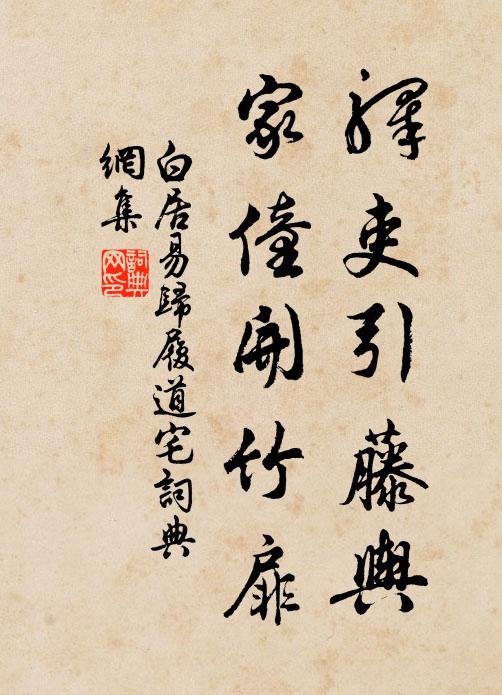 驛吏引藤輿
家僮開竹扉
白居易歸履道宅詞典
網集
詞典网印